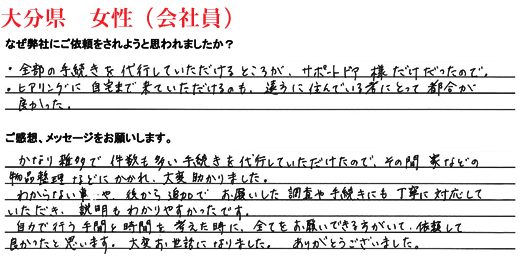 大分県　女性（会社員）
なぜ弊社にご依頼をされようと思われましたか？
・全部の手続きを代行していただけるところが、サポートドア様だけだったので。
・ヒアリングに自宅まで来ていただけるのも、遠方に住んでいる者にとって都合が
良かった。
ご感想、メッセージをお願いします。
かなり雑多で件数も多い手続きを代行していただけたので、その間 家などの
物品整理などにかかれ、大変助かりました。
わからない事や、後から追加でお願いした調査や手続きにも丁寧に対応して
いただき、説明もわかりやすかったです。
自力で行う手間と時間を考えた時に、全てをお願いできる方がいて、依頼して
良かったと思います。大変お世話になりました。ありがとうございました。